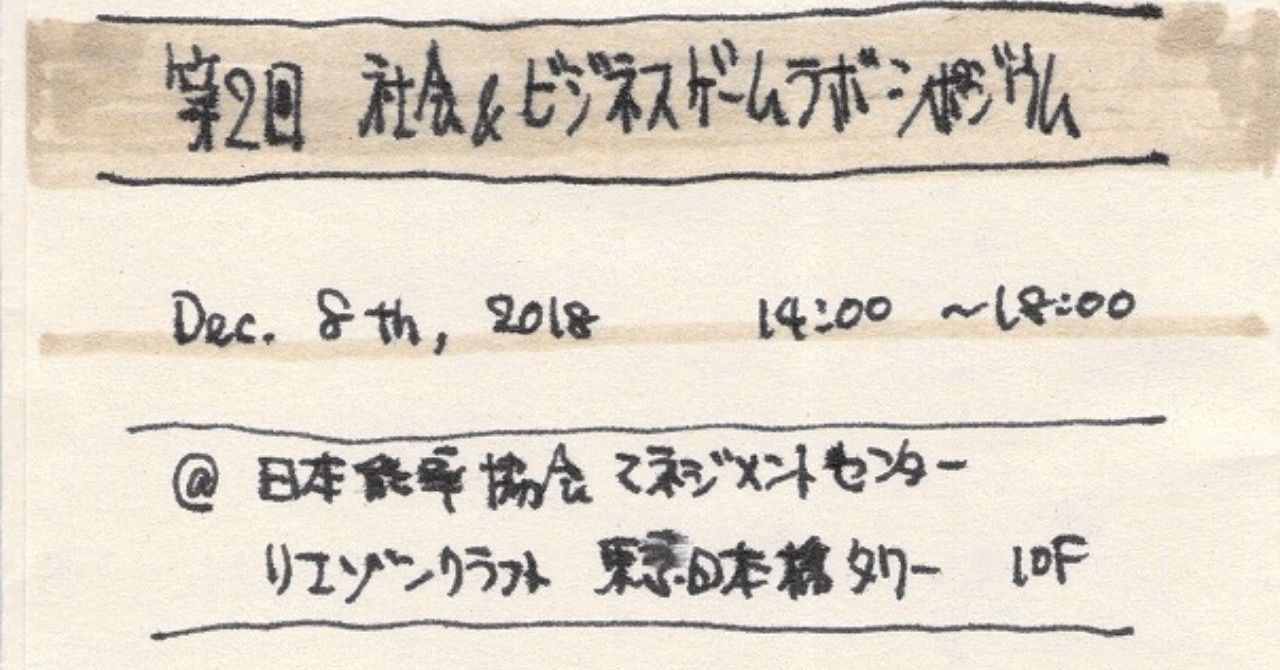 第2回 社会&ビジネスゲームラボ シンポジウム
Dec. 8th, 2018 14:00 ~18:00
@ 日本能率協会マネジメントセンター
リエゾンクラフト 東京日本橋タワー 10F